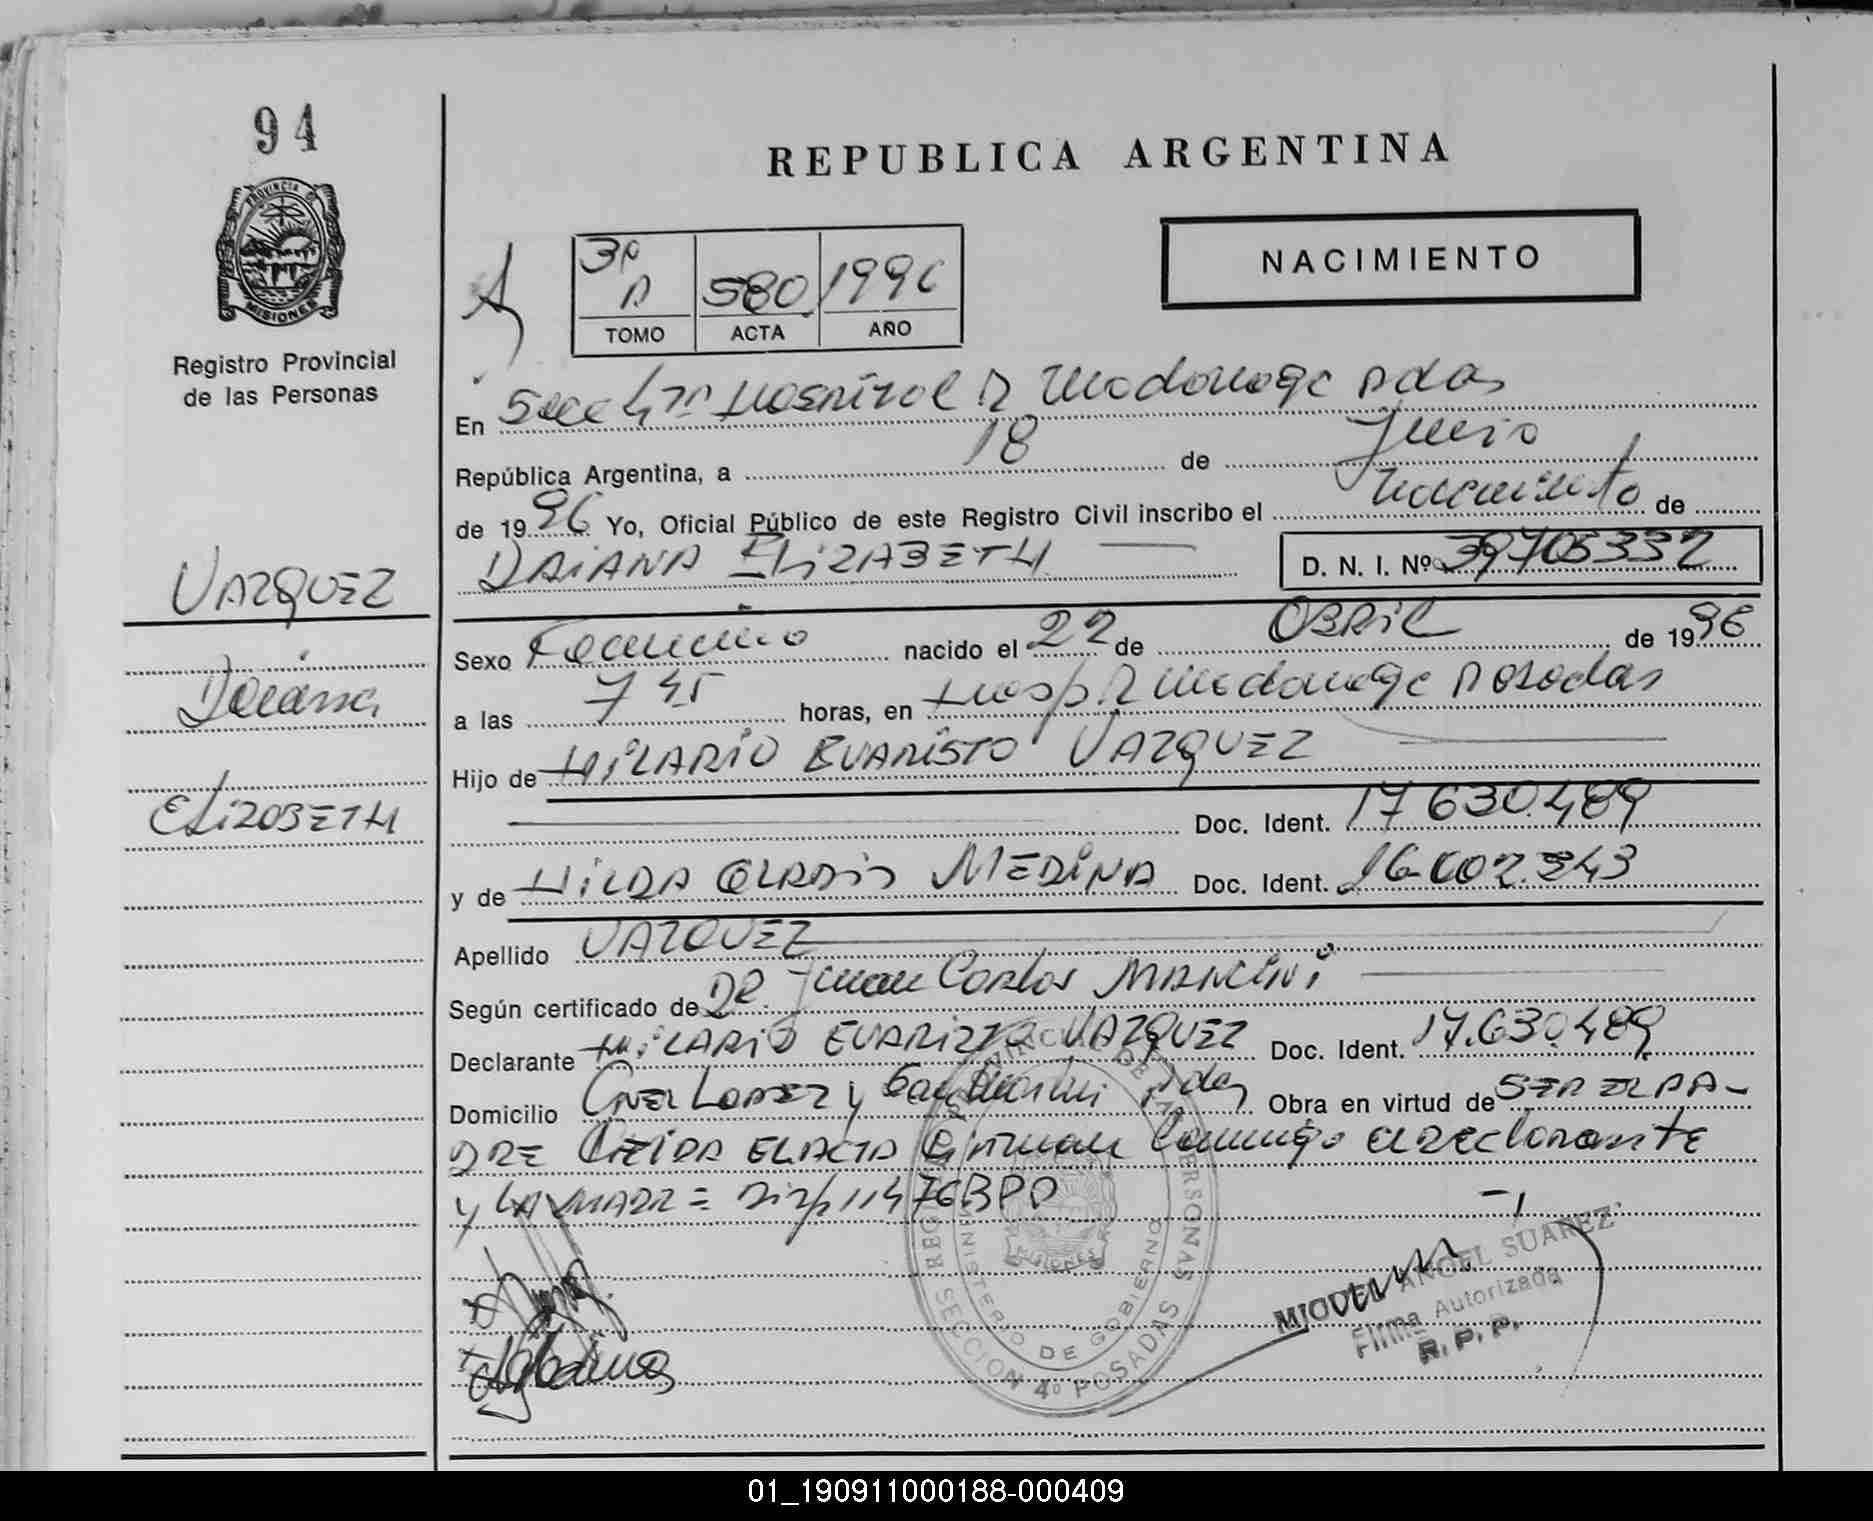 94
REPUBLICA ARGENTINA
PROVINCIA DE
MISIONES
Registro Provincial
de las Personas
NACIMIENTO
580 1996
TOMO ACTA AÑO
En Secc 4ta Hospital R Madariaga Pdas
República Argentina, a 18 de Junio
de 1996 Yo, Oficial Público de este Registro Civil inscribo el nacimiento de
DAIANA ELIZABETH D. N. I. Nº 39705332
VAZQUEZ
Daiana
ELIZABETH
Sexo Femenino nacido el 22 de ABRIL de 1996
a las 7 45 horas, en Hosp. R Madariaga Posadas
Hijo de HILARIO EVARISTO VAZQUEZ
Doc. Ident. 17 630.489
y de HILDA GLADIS MEDINA Doc. Ident. 16.002.343
Apellido VAZQUEZ
Según certificado de DR. Juan Carlos MANCINI
Declarante HILARIO EVARISTO VAZQUEZ Doc. Ident. 17.630.489
Domicilio CNEL LOPEZ y San Martin Pdas Obra en virtud de SER EL PA-
DRE LEIDA EL ACTA firman conmigo el declarante
y LA MADRE =
REGISTRO PROVINCIAL DE LAS PERSONAS
MINISTERIO DE GOBIERNO
MISIONES
SECCION 4º POSADAS
MIGUEL ANGEL SUAREZ
Firma Autorizada
R. P. P.
01_190911000188-000409